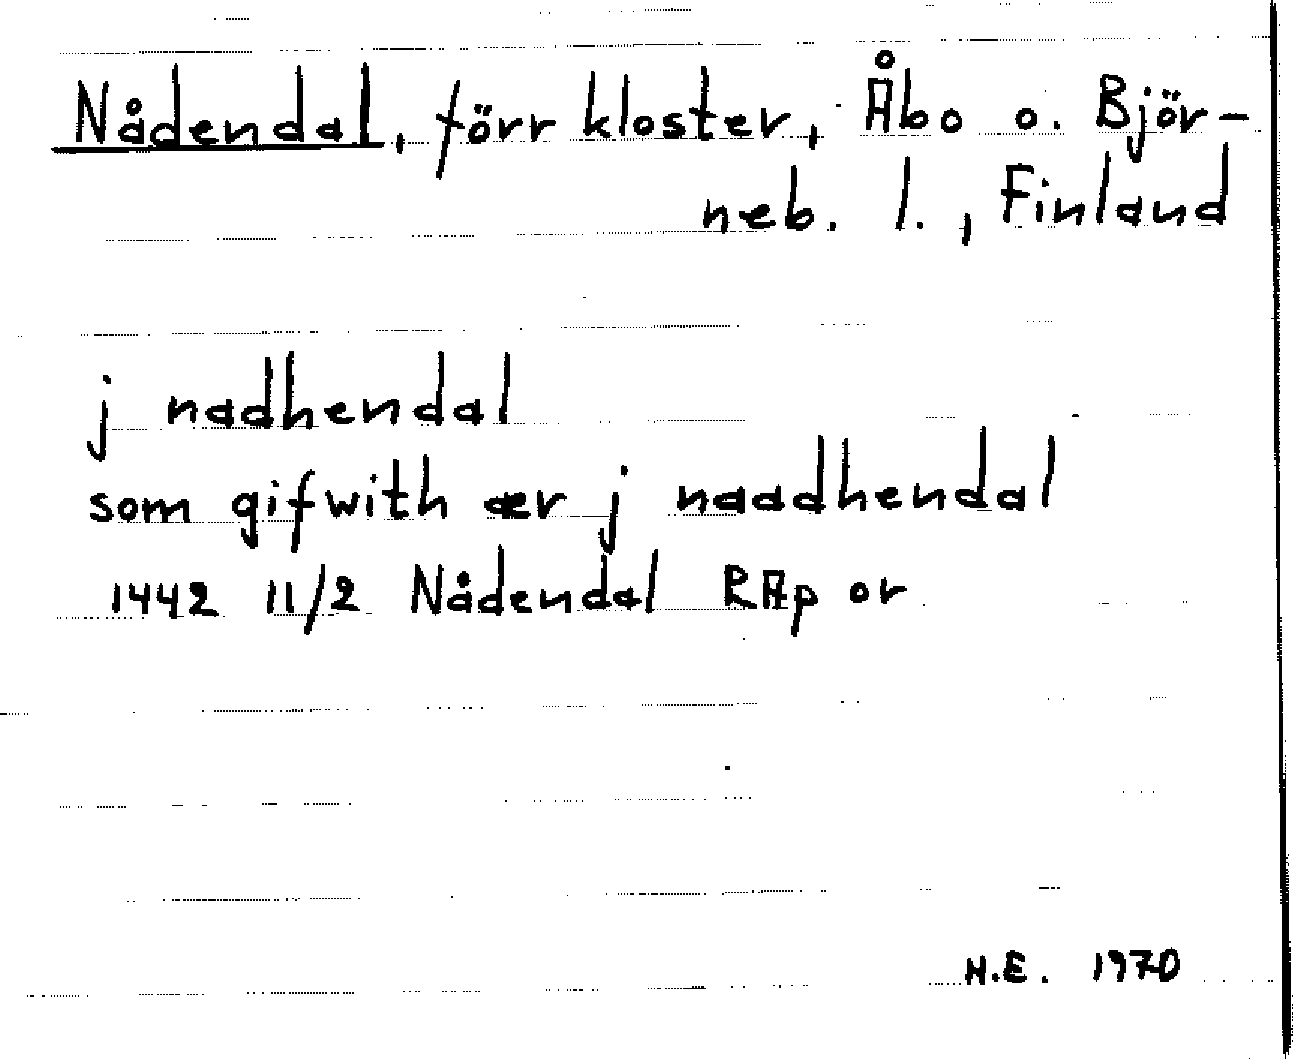 Nådendal, förr kloster, Åbo o. Björ-
neb. l., Finland
j nadhendal
som gifwith ær j naadhendal
1442 11/2 Nådendal RAp or
H.E. 1970